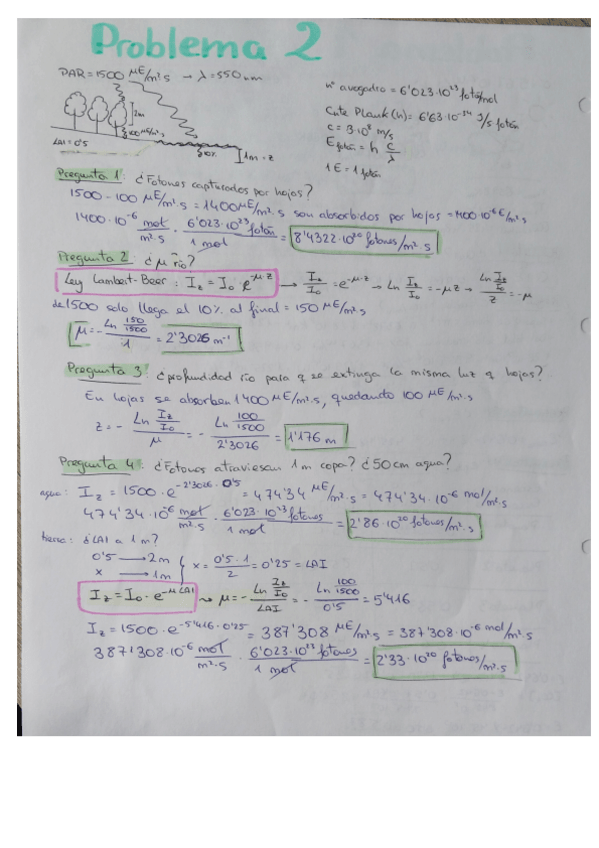 Problema 2
PAR = 1500 μE/m²·s → λ = 550 nm
2m
100 μE/m²·s
LAI = 0'5
10%
1m = z
nº avogadro = 6'023·10²³ fotón/mol
Cnte Plank (h) = 6'63·10⁻³⁴ J/s fotón
c = 3·10⁸ m/s
E fotón = h c/λ
1 E = 1 fotón
Pregunta 1: ¿Fotones capturados por hojas?
1500 - 100 μE/m²·s = 1400 μE/m²·s son absorbidos por hojas = 1400·10⁻⁶ E/m²·s
1400·10⁻⁶ mol/m²·s · 6'023·10²³ fotón/1 mol = 8'4322·10²⁰ fotones/m²·s
Pregunta 2: ¿μ río?
Ley Lambert-Beer: Iz = I₀·e^-μ·z → Iz/I₀ = e^-μ·z → Ln Iz/I₀ = -μz → Ln Iz/I₀ / z = -μ
de 1500 solo llega el 10% al final = 150 μE/m²s
μ = - Ln 150/1500 / 1 = 2'3026 m⁻¹
Pregunta 3: ¿profundidad río para q se extinga la misma luz q hojas?
En hojas se absorben 1400 μE/m²·s, quedando 100 μE/m²·s
z = - Ln Iz/I₀ / μ = - Ln 100/1500 / 2'3026 = 1'176 m
Pregunta 4: ¿Fotones atraviesan 1m copa? ¿50cm agua?
agua: Iz = 1500·e^-2'3026·0'5 = 474'34 μE/m²·s = 474'34·10⁻⁶ mol/m²·s
474'34·10⁻⁶ mol/m²·s · 6'023·10²³ fotones/1 mol = 2'86·10²⁰ fotones/m²·s
tierra: ¿LAI a 1m?
0'5 → 2m
x → 1m
x = 0'5·1/2 = 0'25 = LAI
Iz = I₀·e^-μ LAI → μ = - Ln Iz/I₀ / LAI = - Ln 100/1500 / 0'5 = 5'416
Iz = 1500·e^-5'416·0'25 = 387'308 μE/m²s = 387'308·10⁻⁶ mol/m²·s
387'308·10⁻⁶ mol/m²·s · 6'023·10²³ fotones/1 mol = 2'33·10²⁰ fotones/m²·s